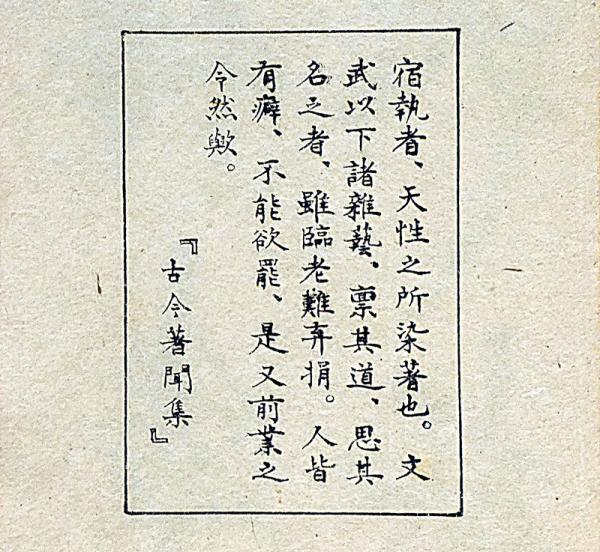 宿執者、天性之所染著也。文
武以下諸雜藝、禀其道、思其
名之者、雖臨老難弃捐。人皆
有癖、不能欲罷、是又前業之
令然歟。
『古今著聞集』